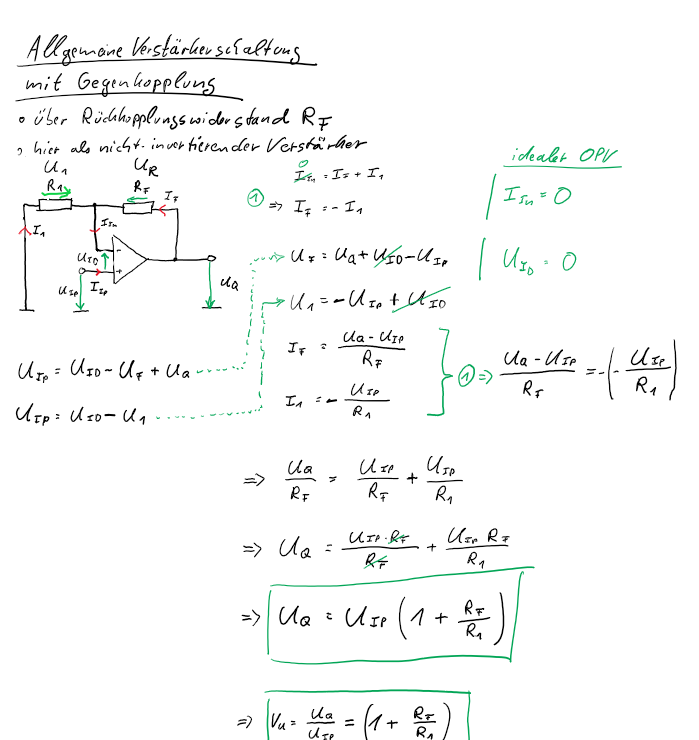 Allgemeine Verstärkerschaltung
mit Gegenkopplung
• über Rückkopplungswiderstand R_F
• hier als nicht-invertierender Verstärker
U_1 U_R
R_1 R_F I_F
I_1 I_In
U_ID
- +
U_Ip I_Ip U_a
idealer OPV
I_In = 0
U_ID = 0
0
I_In = I_F + I_1
① => I_F = - I_1
U_F = U_a + U_ID - U_Ip
U_1 = - U_Ip + U_ID
U_Ip = U_ID - U_F + U_a
U_Ip = U_ID - U_1
I_F = (U_a - U_Ip) / R_F
I_1 = - U_Ip / R_1
① => (U_a - U_Ip) / R_F = -(- U_Ip / R_1)
=> U_a / R_F = U_Ip / R_F + U_Ip / R_1
=> U_a = U_Ip · R_F / R_F + U_Ip R_F / R_1
=> U_a = U_Ip (1 + R_F / R_1)
=> V_u = U_a / U_Ip = (1 + R_F / R_1)